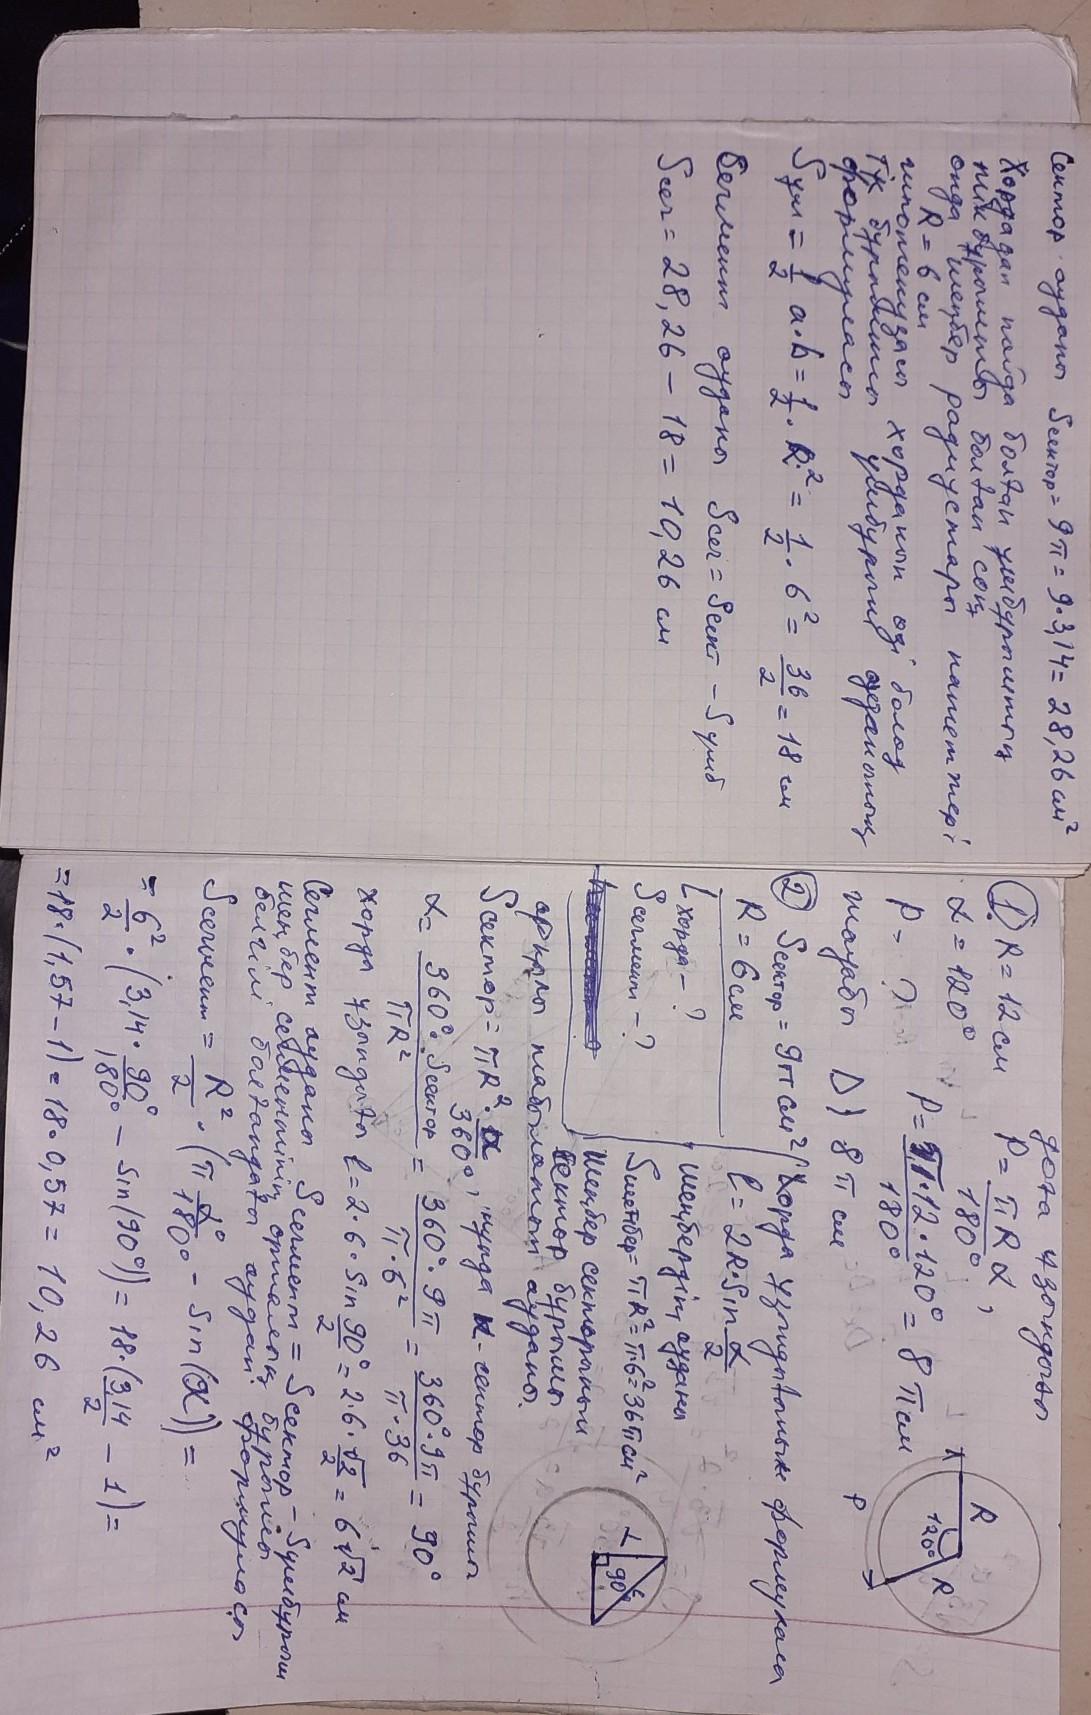 ① R = 12 см
α = 120°
P = ?
доға ұзындығы
P = πRα / 180° ,
P = π·12·120° / 180° = 8π см
жауабы D) 8π см
R
120°
R
P
② Sсектор = 9π см²
R = 6 см
Lхорда - ?
Sсегмент - ?
Хорда ұзындығының формуласы
l = 2R·sin α/2
Шеңбердің ауданы
Sшеңбер = πR² = π·6² = 36π см²
Шеңбер секторының
сектор бұрышы
арқылы табылатын ауданы.
90°
L
Sсектор = πR²·α / 360° , мұнда α - сектор бұрышы
α = 360°·Sсектор / πR² = 360°·9π / π·6² = 360°·9π / π·36 = 90°
Хорда ұзындығы l = 2·6·sin 90°/2 = 2·6·√2/2 = 6√2 см
Сегмент ауданы Sсегмент = Sсектор - Sүшбұрыш
шеңбер сегментінің орталық бұрышы
белгілі болғандағы ауданы формуласы
Sсегмент = R²/2 · (π α°/180° - sin(α)) =
= 6²/2 · (3,14 · 90°/180° - sin(90°)) = 18·(3,14/2 - 1) =
= 18·(1,57 - 1) = 18·0,57 = 10,26 см²
Сектор ауданы Sсектор = 9π = 9·3,14 = 28,26 см²
Хордадан пайда болған үшбұрыштың
тікбұрышты болған соң
онда шеңбер радиустары катеттері
R = 6 см
гипотенузасы хорданың өзі болад
Тік бұрышты үшбұрыш ауданының
формуласы
Sүш = 1/2 a·b = 1/2·R² = 1/2·6² = 36/2 = 18 см
Сегмент ауданы Sсег = Sсект - Sүшб
Sсег = 28,26 - 18 = 10,26 см